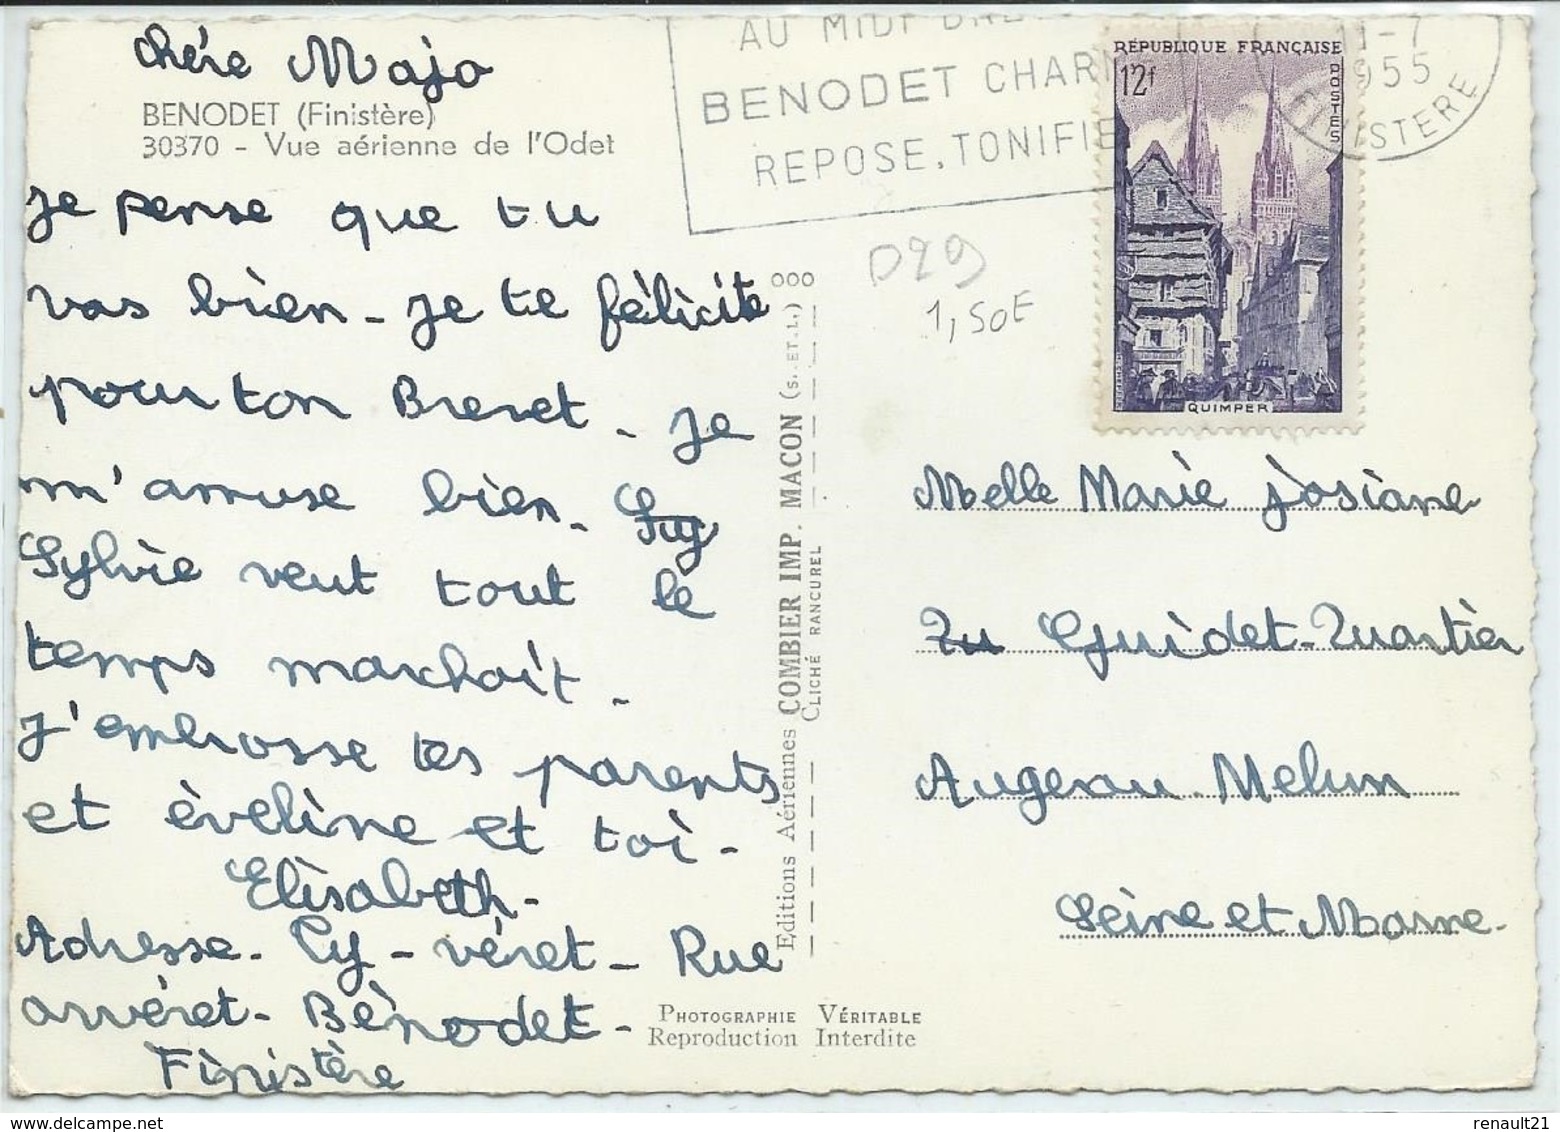 chére Majo
BENODET (Finistère)
30370 - Vue aérienne de l'Odet
je pense que tu
vas bien - je te félicite
pour ton Brevet - je
m'amuse bien - Guy
Sylvie veut tout le
temps marchait -
J'embrasse tes parents
et èveline et toi -
Elisabeth -
Adresse - Ty - véret - Rue
anvéret - Bènodet -
Finistère
Editions Aériennes COMBIER IMP. MACON (S. ET. L.)
CLICHÉ RANCUREL
PHOTOGRAPHIE VÉRITABLE
Reproduction Interdite
AU MIDI
BENODET CHAR
REPOSE, TONIFIE
1955
FINISTERE
RÉPUBLIQUE FRANÇAISE
12f
POSTES
QUIMPER
D29
1,50E
Melle Marie josiane
Guidet - Quartier
Augereau - Melun
Seine et Marne -
delcampe.net
renault21